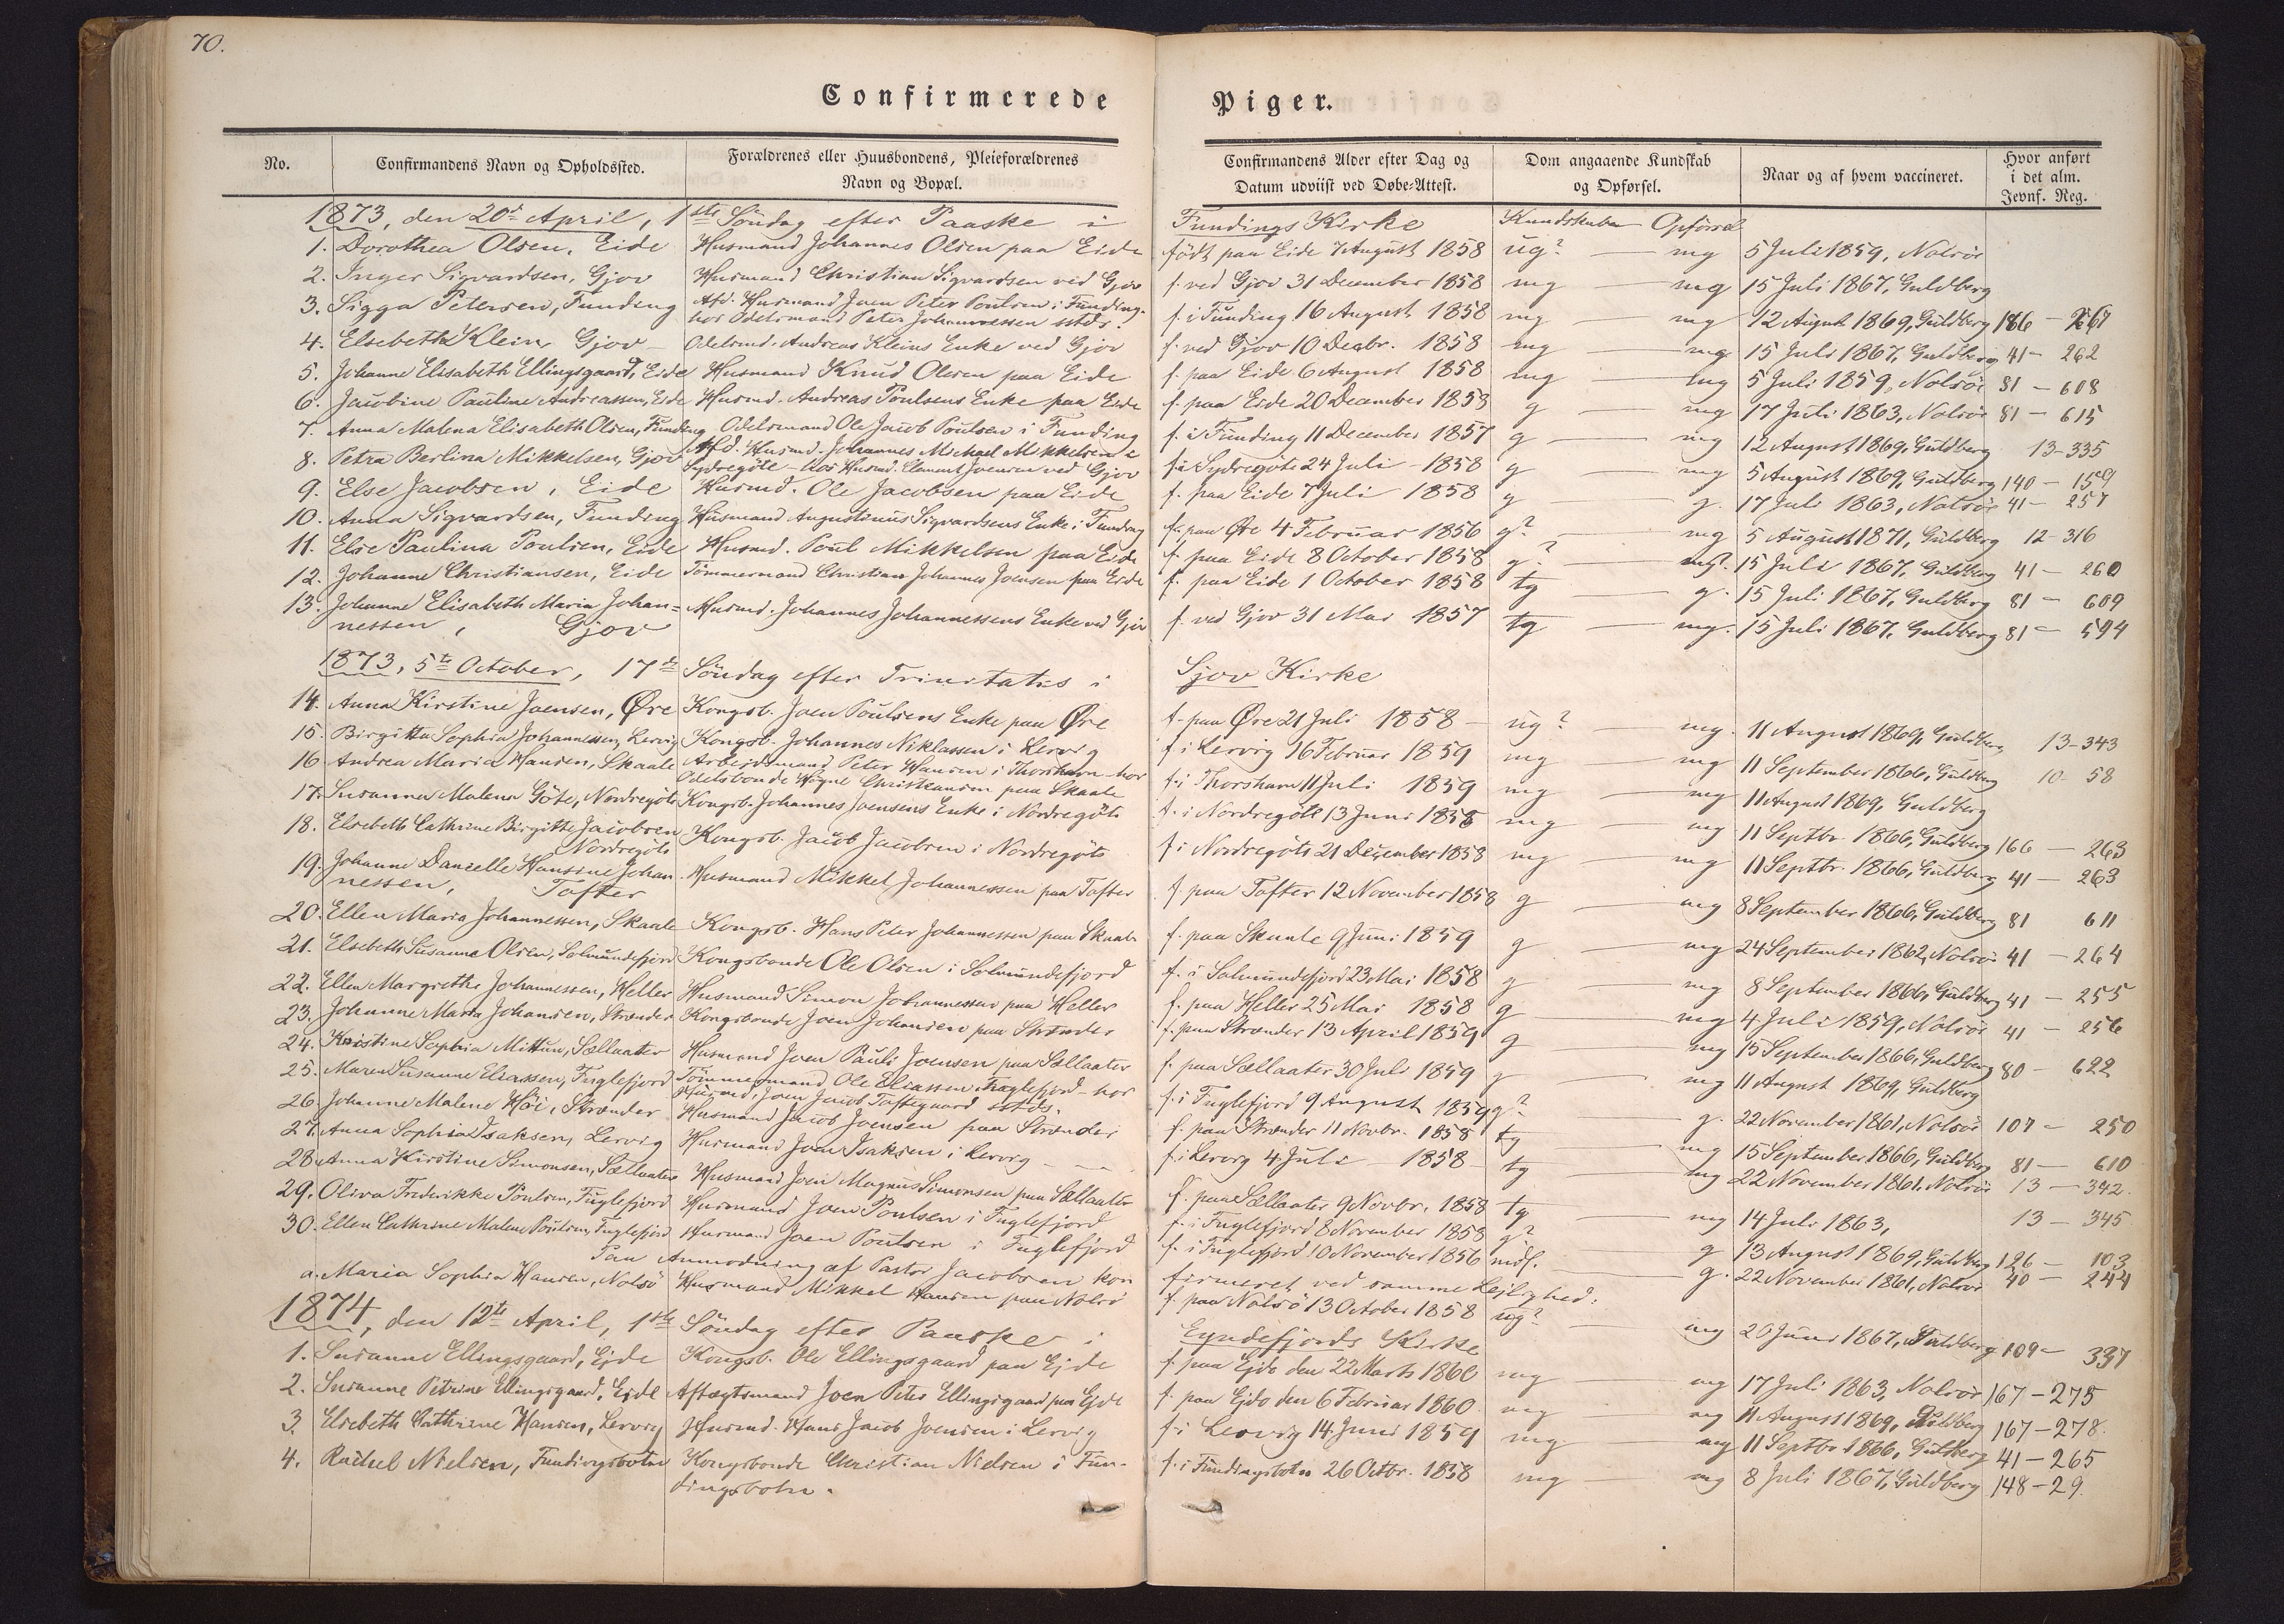 70.
Confirmerede Piger.
No. Confirmandens Navn og Opholdssted. Forældrenes eller Huusbondens, Pleieforældrenes Navn og Bopæl. Confirmandens Alder efter Dag og Datum udviist ved Døbe-Attest. Dom angaaende Kundskab og Opførsel. Naar og af hvem vaccineret. Hvor anført i det alm. Jevnf. Reg.
1873, den 20de April, 1ste Söndag efter Paaske i Fundings Kirke Kundskaber Opförsel
1. Dorothea Olsen, Eide Husmand Johannes Olsen paa Eide född paa Eide 7 August 1858 ug? — mg 5 Juli 1859, Nolsöe
2. Inger Sigvardsen, Gjov Husmand Christian Sigvardsen ved Gjov f. ved Gjov 31 December 1858 mg — mg 15 Juli 1867, Guldberg
3. Sigga Petersen, Funding Afd. Husmand Joen Peter Poulsen i Funding. f. i Funding 16 August 1858 mg — mg 12 August 1869, Guldberg 186 — 267
hos Odelsmand Peter Johannessen sstds.
4. Elsebeth Klein, Gjov Odelsmd. Andreas Kleins Enke ved Gjov f. ved Gjov 10 Decbr. 1858 mg — mg 15 Juli 1867, Guldberg 41 — 262
5. Johanne Elisabeth Ellingsgaard, Eide Husmand Knud Olesen paa Eide f. paa Eide 6 August 1858 mg — mg 5 Juli 1859, Nolsöe 81 — 608
6. Jacobine Pauline Andreassen, Eide Husmd. Andreas Poulsens Enke paa Eide f. paa Eide 20 December 1858 g — mg 17 Juli 1863, Nolsöe 81 — 615
7. Anna Malena Elisabeth Olsen, Funding Odelsmand Ole Jacob Poulsen i Funding f. i Funding 11 December 1857 g — mg 12 August 1869, Guldberg 13 — 335
8. Petra Berlina Mikkelsen, Gjov Afd. Husmd. Johannes Michael Mikkelsen i f. i Sydregöte 24 Juli 1858 g — mg 5 August 1869, Guldberg 140 — 159
Sydregöte — hos Husmd. Clement Joensen ved Gjov
9. Else Jacobsen, Eide Husmd. Ole Jacobsen paa Eide f. paa Eide 7 Juli 1858 g — g. 17 Juli 1863, Nolsöe 41 — 257
10. Anna Sigvardsen, Funding Husmand Augustinus Sigvardsens Enke i Funding f. paa Øre 4 Februar 1856 g? — mg 5 August 1871, Guldberg 12 — 316
11. Else Paulina Poulsen, Eide Husmd. Poul Mikkelsen paa Eide f. paa Eide 8 October 1858 g? — mg? 15 Juli 1867, Guldberg 41 — 260
12. Johanne Christiansen, Eide Tömmermand Christian Johannes Joensen paa Eide f. paa Eide 1 October 1858 tg — g. 15 Juli 1867, Guldberg 81 — 609
13. Johanne Elisabeth Maria Johan= Husmd. Johannes Johannessens Enke ved Gjov f. ved Gjov 31 Mai 1857 tg — mg. 15 Juli 1867, Guldberg 81 — 594
nessen, Gjov
1873, 5te October, 17de Söndag efter Trinitatis i Gjov Kirke
14. Anna Kirstine Joensen, Øre Kongsb. Joen Poulsens Enke paa Øre f. paa Øre 21 Juli 1858 — ug? — mg. 11 August 1869, Guldberg 13 — 343
15. Birgitta Sophia Johannessen, Lervig Kongsb. Johannes Niklassen i Lervig f. i Lervig 16 Februar 1859 mg — mg 11 September 1866, Guldberg 10 — 58
16 Andrea Maria Hansen, Skaale Arbeidsmand Peter Hansen i Thorshavn hos f. i Thorshavn 11 Juli 1859 mg — mg 11 August 1869, Guldberg
Odelsbonde Högne Christiansen paa Skaale
17. Susanna Malena Göte, Nordregöte Kongsb. Johannes Joensens Enke i Nordregöte f. i Nordregöte 13 Juni 1858 mg — mg 11 Septbr. 1866, Guldberg 166 — 263
18. Elsebeth Cathrine Birgitte Jacobsen Kongsb. Jacob Jacobsen i Nordregöte f. i Nordregöte 21 December 1858 mg — mg 11 Septbr. 1866, Guldberg 41 — 263
Nordregöte
19. Johanne Danielle Hansine Johan Husmand Mikkel Johannessen paa Tofter f. paa Tofter 12 November 1858 g — mg 8 September 1866, Guldberg 81 611
nessen, Tofter
20. Ellen Maria Johannessen, Skaale Kongsb. Hans Peter Johannessen paa Skaale f. paa Skaale 9 Juni 1859 g — mg 24 September 1862, Nolsöe 41 — 264
21. Elsebeth Susanna Olsen, Solmundefjord Kongsbonde Ole Olsen i Solmundefjord f. i Solmundefjord 23 Mai 1858 g — mg 8 September 1866, Guldberg 41 — 255
22. Ellen Margrethe Johannessen, Heller Husmand Simon Johannessen paa Heller f. paa Heller 25 Mai 1858 g — mg 4 Juli 1859, Nolsöe 41 — 256
23. Johanne Maria Johansen, Strænder Kongsbonde Joen Johansen paa Strænder f. paa Strænder 13 April 1859 g — mg 15 September 1866, Guldberg 80 — 622
24. Kristine Sophia Mittun, Sællaater Husmand Joen Pauli Joensen paa Sællaater f. paa Sællaater 30 Juli 1859 g — mg 11 August 1869, Guldberg
25. Maren Susanne Eliassen, Fuglefjord Tömmermand Ole Eliassen Fuglefjord — hos f. i Fuglefjord 9 August 1859 g? — g. 22 November 1861, Nolsöe 107 — 250
Husmd. Joen Jacob Toftegaard sstds.
26. Johanne Malene Höi, Strænder Husmand Jacob Joensen paa Strænder f. paa Strænder 11 Novbr. 1858 tg — mg 15 September 1866, Guldberg 81 — 610
27. Anna Sophia Isaksen, Lervig Husmand Joen Isaksen i Lervig f. i Lervig 4 Juli 1858 tg — mg 22 November 1861, Nolsöe 13 — 342.
28. Anna Kirstine Simonsen, Sællaater Husmand Joen Magnus Simonsen paa Sællaater f. paa Sællaater 9 Novbr. 1858 tg — mg 14 Juli 1863, 13 — 345
29. Oliva Frederikke Poulsen, Fuglefjord Husmand Joen Poulsen i Fuglefjord f. i Fuglefjord 8 November 1858 g? — g 13 August 1869, Guldberg 126 — 103
30. Ellen Cathrine Malene Poulsen, Fuglefjord Husmand Joen Poulsen i Fuglefjord f. i Fuglefjord 10 November 1856 mdl. — g. 22 November 1861, Nolsöe 40 — 244
Paa Anmodning af Pastor Jacobsen kon firmeret ved samme Lejlighed:
a. Maria Sophia Hansen, Nolsö Husmand Mikkel Hansen paa Nolsö f. paa Nolsö 13 October 1858 ug? — mg 20 Juni 1867, Guldberg 109 — 337
1874, den 12te April, 1ste Söndag efter Paaske i Eyndefjords Kirke
1. Susanne Ellingsgaard, Ejde Kongsb. Ole Ellingsgaard paa Ejde f. paa Ejde den 22 Marts 1860 mg — mg 17 Juli 1863, Nolsöe 167 — 275
2. Susanne Petrine Ellingsgaard, Ejde Aftægtsmand Joen Peter Ellingsgaard paa Ejde f. paa Ejde den 6 Februar 1860. mg — mg 11 August 1869, Guldberg 167 — 278.
3. Elsebeth Cathrine Hansen, Lervig Husmd. Hans Jacob Joensen i Lervig f. i Lervig 14 Juni 1859 mg — mg 11 Septbr 1866, Guldberg 41 — 265
4. Rachel Nielsen, Fundingsbotn Kongsbonde Christian Nielsen i Fun- f. i Fundingsbotn 26 Octbr. 1858 mg — mg 8 Juli 1867, Guldberg 148 — 29.
dingsbotn.